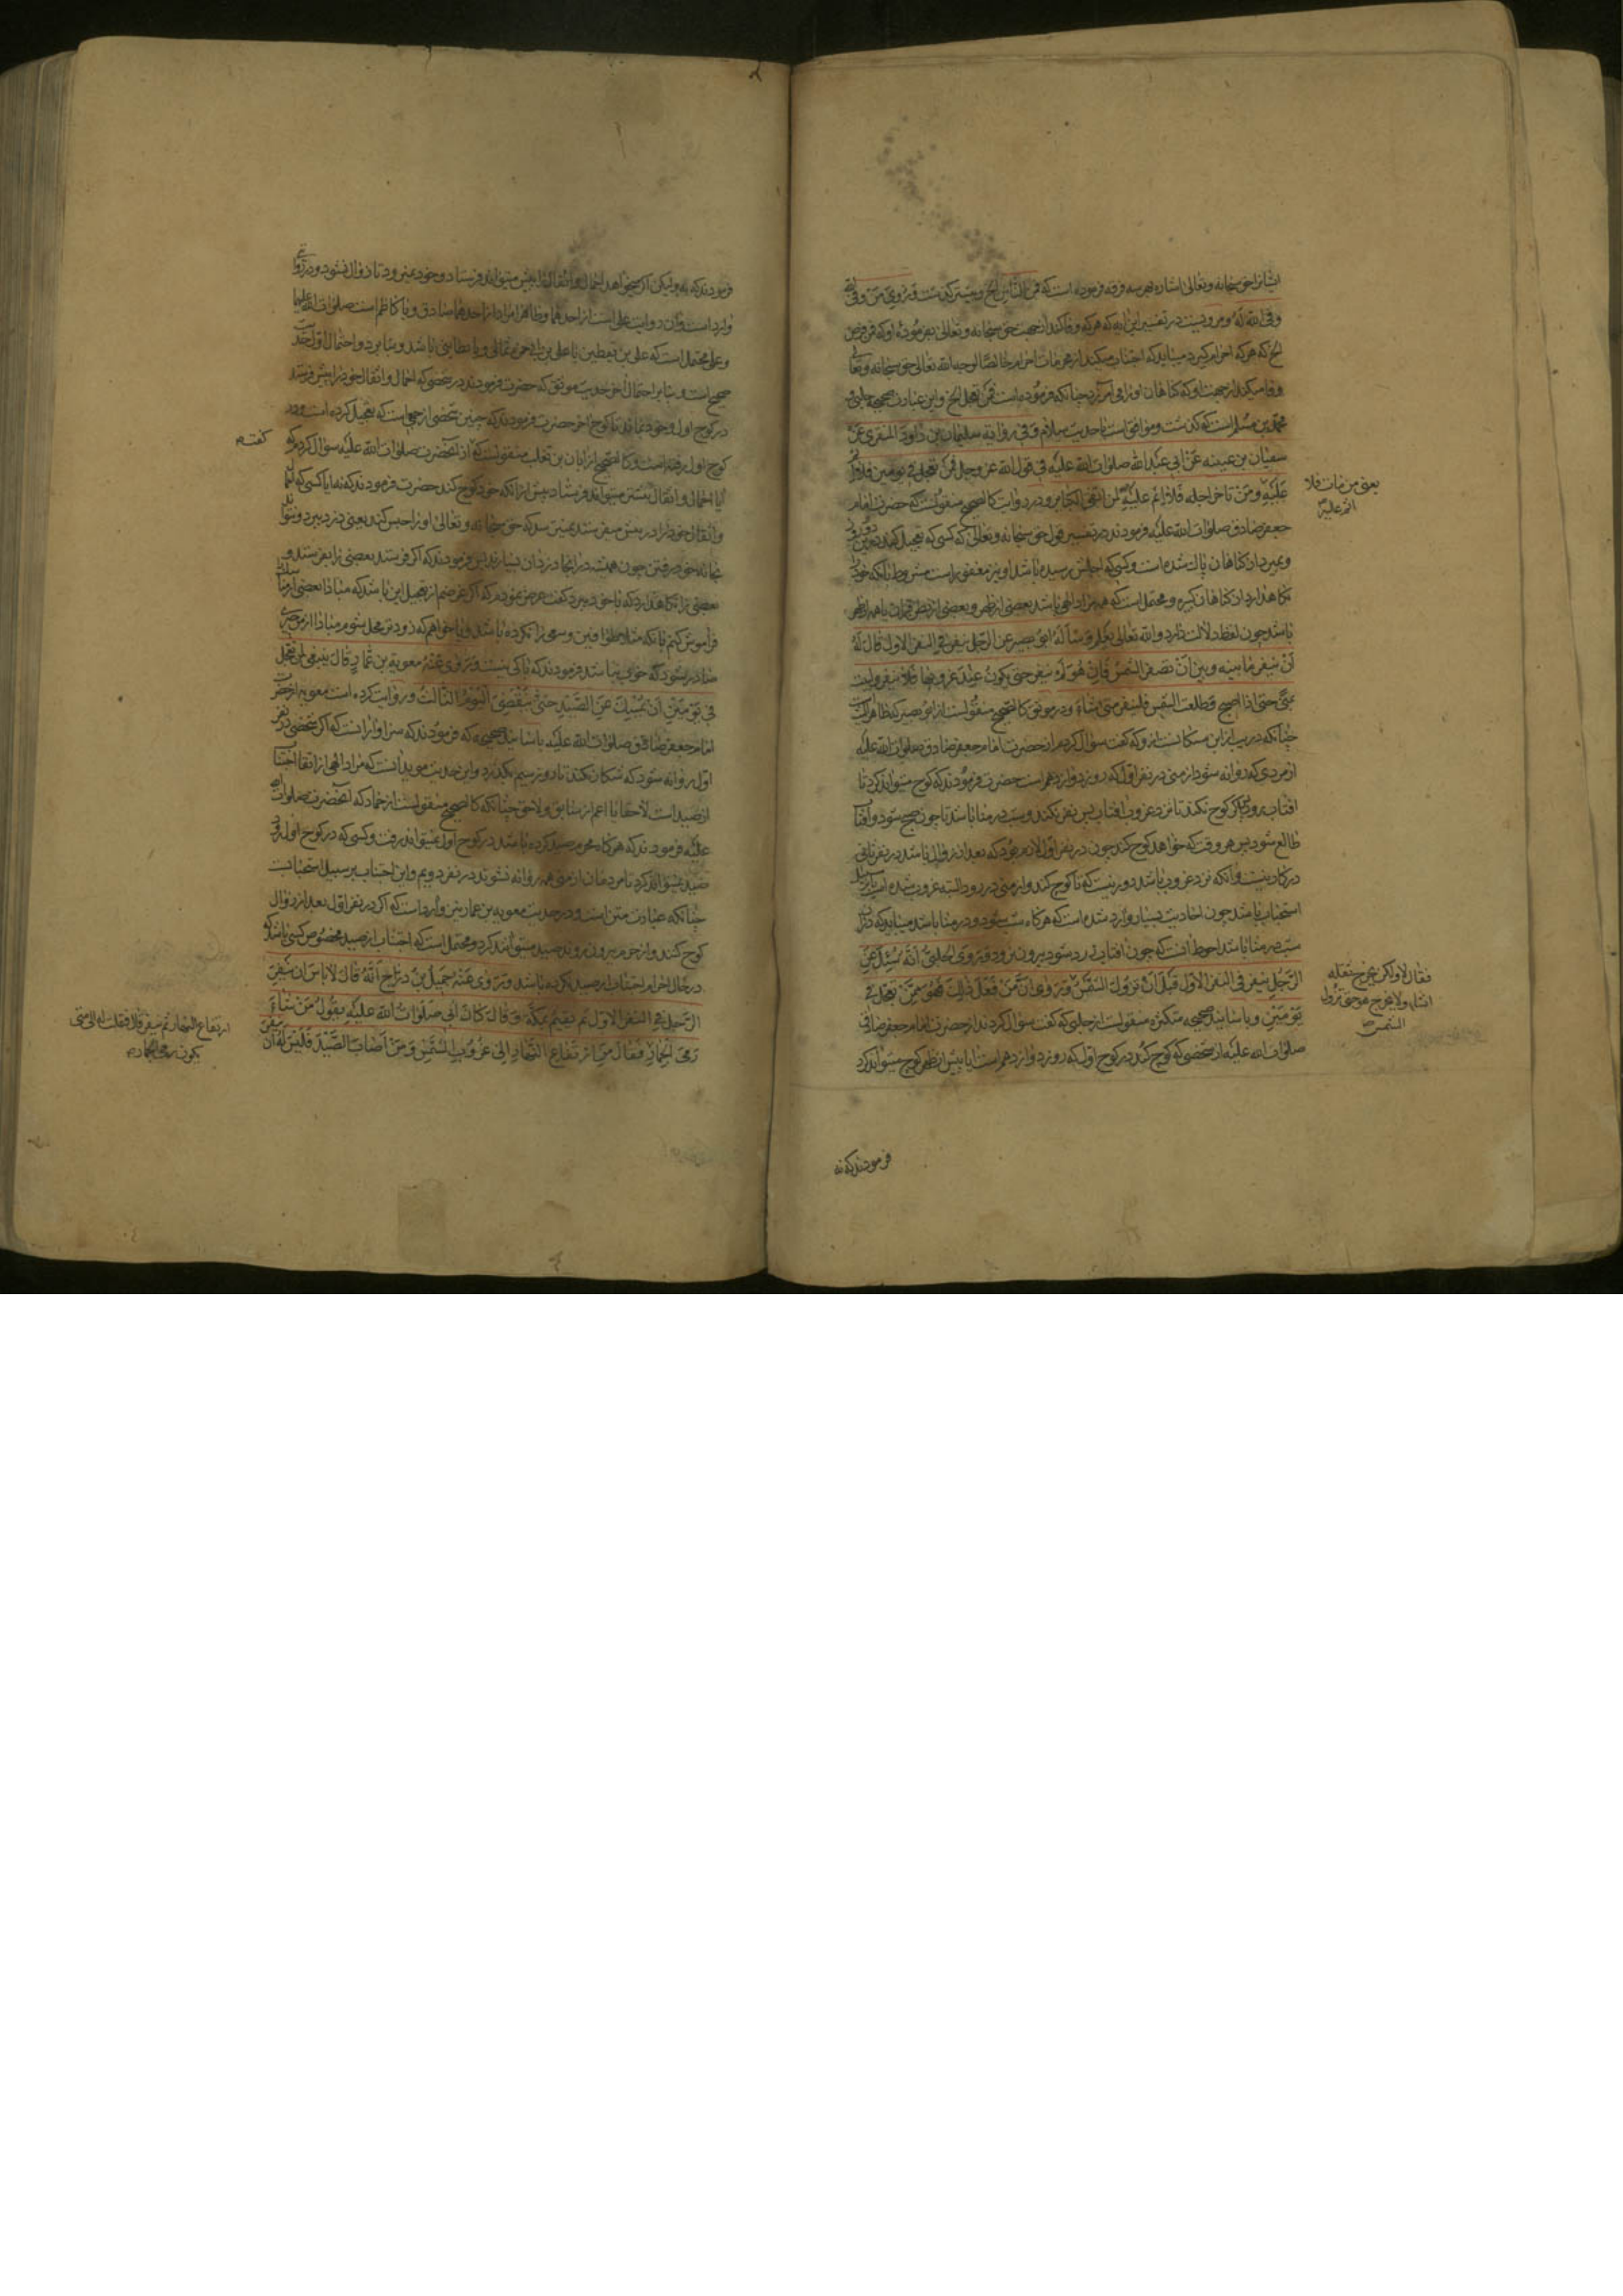 ایشانرا حق سبحانه وتعالی اشاره بهر سه فرقه فرموده است که فمن الناس الخ وپیشتر گذشت وَرُوِیَ مَنْ وَفیٰ لله
وفی الله له ومرویست در تفسیر این آیه که هر که وفا کند از جهت حق سبحانه وتعالی بفرموده او که فمن فرض
الخ که هر که احرام گیرد میباید که اجتناب میکند از محرمات احرام خالصا لوجه الله تعالی حق سبحانه وتعالی
وفا میکند از جهت او که گناهان او را می آمرزد چنانکه فرموده است فمن تعجل الخ واین عبارت صحیحه حلبی و
محمد بن مسلم است که گذشت وموافق است با حدیث سلام وَفی روایة سلیمان بن داود المنقری عَنْ
سفیان بن عیینه عَنْ ابی عبدالله صلوات الله علیه فی قول الله عز وجل فمن تعجل فی یومین فلا اثم
عَلَیْهِ ومَنْ تاخر اجله فَلا اثم علیه لمن اتقی الکبایر ودر روایت کالصحیح منقولست که حضرت امام
جعفر صادق صلوات الله علیه فرمودند در تفسیر قول حق سبحانه وتعالی که کسی که تعجیل کند در دو روز
وبمیرد از گناهان پاك شده است وکسی که اجلش رسیده باشد او نیز مغفور است مشروط بانکه خود را
نگاهدارد از گناهان کبیره ومحتمل است که همه مراد الهی باشد بعضی از نص وبعضی از بطن قرآن یا همه از ظهر
باشد چون لفظ دلالت دارد والله تعالی یعلم وَسَألَهُ ابو بصیر عن الرجل ینفر فی النفر الاول قال لَهُ
اَنْ ینفر ما بینه وبین اَنْ تصفر الشمس فَاِن هُوَ لَمْ ینفر حتی یکون عِنْدَ غروبها فَلا ینفر ولیبت
بمنی حتی اذا اصبح وطلعت الشمس فلینفر متی شاء ودر موثق کالصحیح منقولست از ابو بصیر که ظاهرا لیث است
چنانکه در یب از ابن مسکان است از او که گفت سؤال کردم از حضرت امام جعفر صادق صلوات الله علیه
از مردی که روانه شود از منی در نفر اول که روز دوازدهم است حضرت فرمودند که کوچ میتواند کرد تا
افتاب زرد شود واگر کوچ نکند تا نزد غروب افتاب پس نفر نکند وشب در منا باشد تا چون صبح شود وافتاب
طالع شود پس هر وقت که خواهد کوچ کند چون در نفر اول لازم بود که بعد از زوال باشد در نفر ثانی
در کار نیست وانکه نزد غروب باشد دور نیست که تا کوچ کند واز منی در رود البته غروب شده است یا بر سبیل
استحباب باشد چون احادیث بسیار وارد شده است که هرگاه شب شود ودر منا باشد میباید که در ان
شب در منا باشد احوط انست که چون افتاب زرد شود بیرون نرود وَرَوَی الحلبیُّ اَنَّهُ سُئِلَ عَنِ
الرَّجُلِ ینفر فی النفر الاول قَبْلَ اَنْ تزول الشمس وَرُوِیَ اَنَّ مَنْ فَعَلَ ذٰلِكَ فَهُوَ مِمَّنْ تعجل فی
یَوْمَیْنِ وباسانید صحیحه متکثره منقولست از حلبی که گفت سؤال کردند از حضرت امام جعفر صادق
صلوات الله علیه از شخصی که کوچ کند در کوچ اول که روز دوازدهم است ایا پیش از ظهر کوچ میتواند کرد
یعنی من مات فلا
اثم علیه
فقال لا ولکن یخرج ثقله
انشاء ولا یخرج هو حتی تزول
الشمس
فرمودند که نه
فرمودند که نه ولیکن اگر خواهد احمال واثقال را پیش میتواند فرستاد وخود نمیرود تا زوال نشود ودر روایتی
وارد است وآن روایت علی است از احدهما وظاهرا مراد از احدهما صادق ویا کاظم است صلوات الله علیهما
وعلی محتمل است که علی بن یقطین یا علی بن ابی حمزه ثمالی ویا بطاینی باشد وبنا بر دو احتمال اول حدیث
صحیح است وبنا بر احتمال آخر حدیث موثق که حضرت فرمودند در شخصی که احمال واثقال خود را پیش فرستد
در کوچ اول وخود بماند تا کوچ اخر حضرت فرمودند که چنین شخصی از جمله است که تعجیل کرده است ودر
کوچ اول رفته است وکالصحیح از ابان بن تغلب منقولست که از آنحضرت صلوات الله علیه سؤال کردم که
گفت
ایا احمال واثقال بیشتر میتواند فرستاد پیش از انکه خود کوچ کند حضرت فرمودند که نه ایا کسی که احمال
واثقال خود را در پیش میفرستد نمیترسد که حق سبحانه وتعالی او را حبس کند یعنی دزد ببرد ونتواند
بخانه خود رفتن چون همیشه در انجا دزدان بسیارند پس فرمودند که اگر فرستد بعضی را بفرستد و
بعضی را نگاهدارد که با خود ببرد گفت عرض نمودم که اگر غرضم از تعجیل این باشد که مبادا بعضی از مناسك را
فراموش کنم یا نکه مثلا طواف یا وسعی را نکرده باشد ومیخواهم که زودتر محل شوم مبادا از من چیزی
صادر بشود که خوب نباشد فرمودند که باکی نیست وَرَوی عَنْهُ معویة بن عمار قالَ ینبغی لمن تعجل
فی یَوْمَیْنِ اَن یُمْسِكَ عَنِ الصَّیْدِ حتی یَنْقَضِیَ الْیَوْمُ الثالث وروایت کرده است معویه از حضرت
امام جعفر صادق صلوات الله علیه باسانید صحیحه که فرمودند که سزاوار انست که اگر شخصی در نفر
اول روانه شود که شکار نکند تا روز سیم بگذرد واین حدیث موید آنست که مراد الهی از اتقا اجتناب
از صید است لاحقا یا اعم از سابق ولاحق چنانکه کالصحیح منقولست از حماد که آنحضرت صلوات الله
علیه فرمودند که هرگاه محرم صید کرده باشد در کوچ اول نمیتواند رفت وکسی که در کوچ اول رود
صید نمیتواند کرد تا مردمان از منی همه روانه نشوند در نفر دویم واین اجتناب بر سبیل استحباب است
چنانکه عبارت متن است ودر حدیث معویه بن عمار نیز وارد است که اگر در نفر اول بعد از زوال
کوچ کنند واز حرم بیرون روند صید میتوانند کرد ومحتمل است که اجتناب از صید مخصوص کسی باشد که
در حال احرام اجتناب از صید نکرده باشد وَرَوی عَنْهُ جَمیلُ بْنُ دراج اَنَّهُ قالَ لا باس ان ینفر
الرَّجل فی النفر الاول ثم یقیم بمکة وَقالَ کانَ ابی صَلَواتُ الله عَلَیْهِ یقول مَنْ شاء
رمی الجمار ارتفاع النهار ثم ینفر قال فقلت له الی متی
یکون رمی الجمار
فقال من ارتفاع النهار الی غروب الشمس وَمَنْ اَصابَ الصَّیْدَ فَلَیْسَ لَهُ اَن ینفر